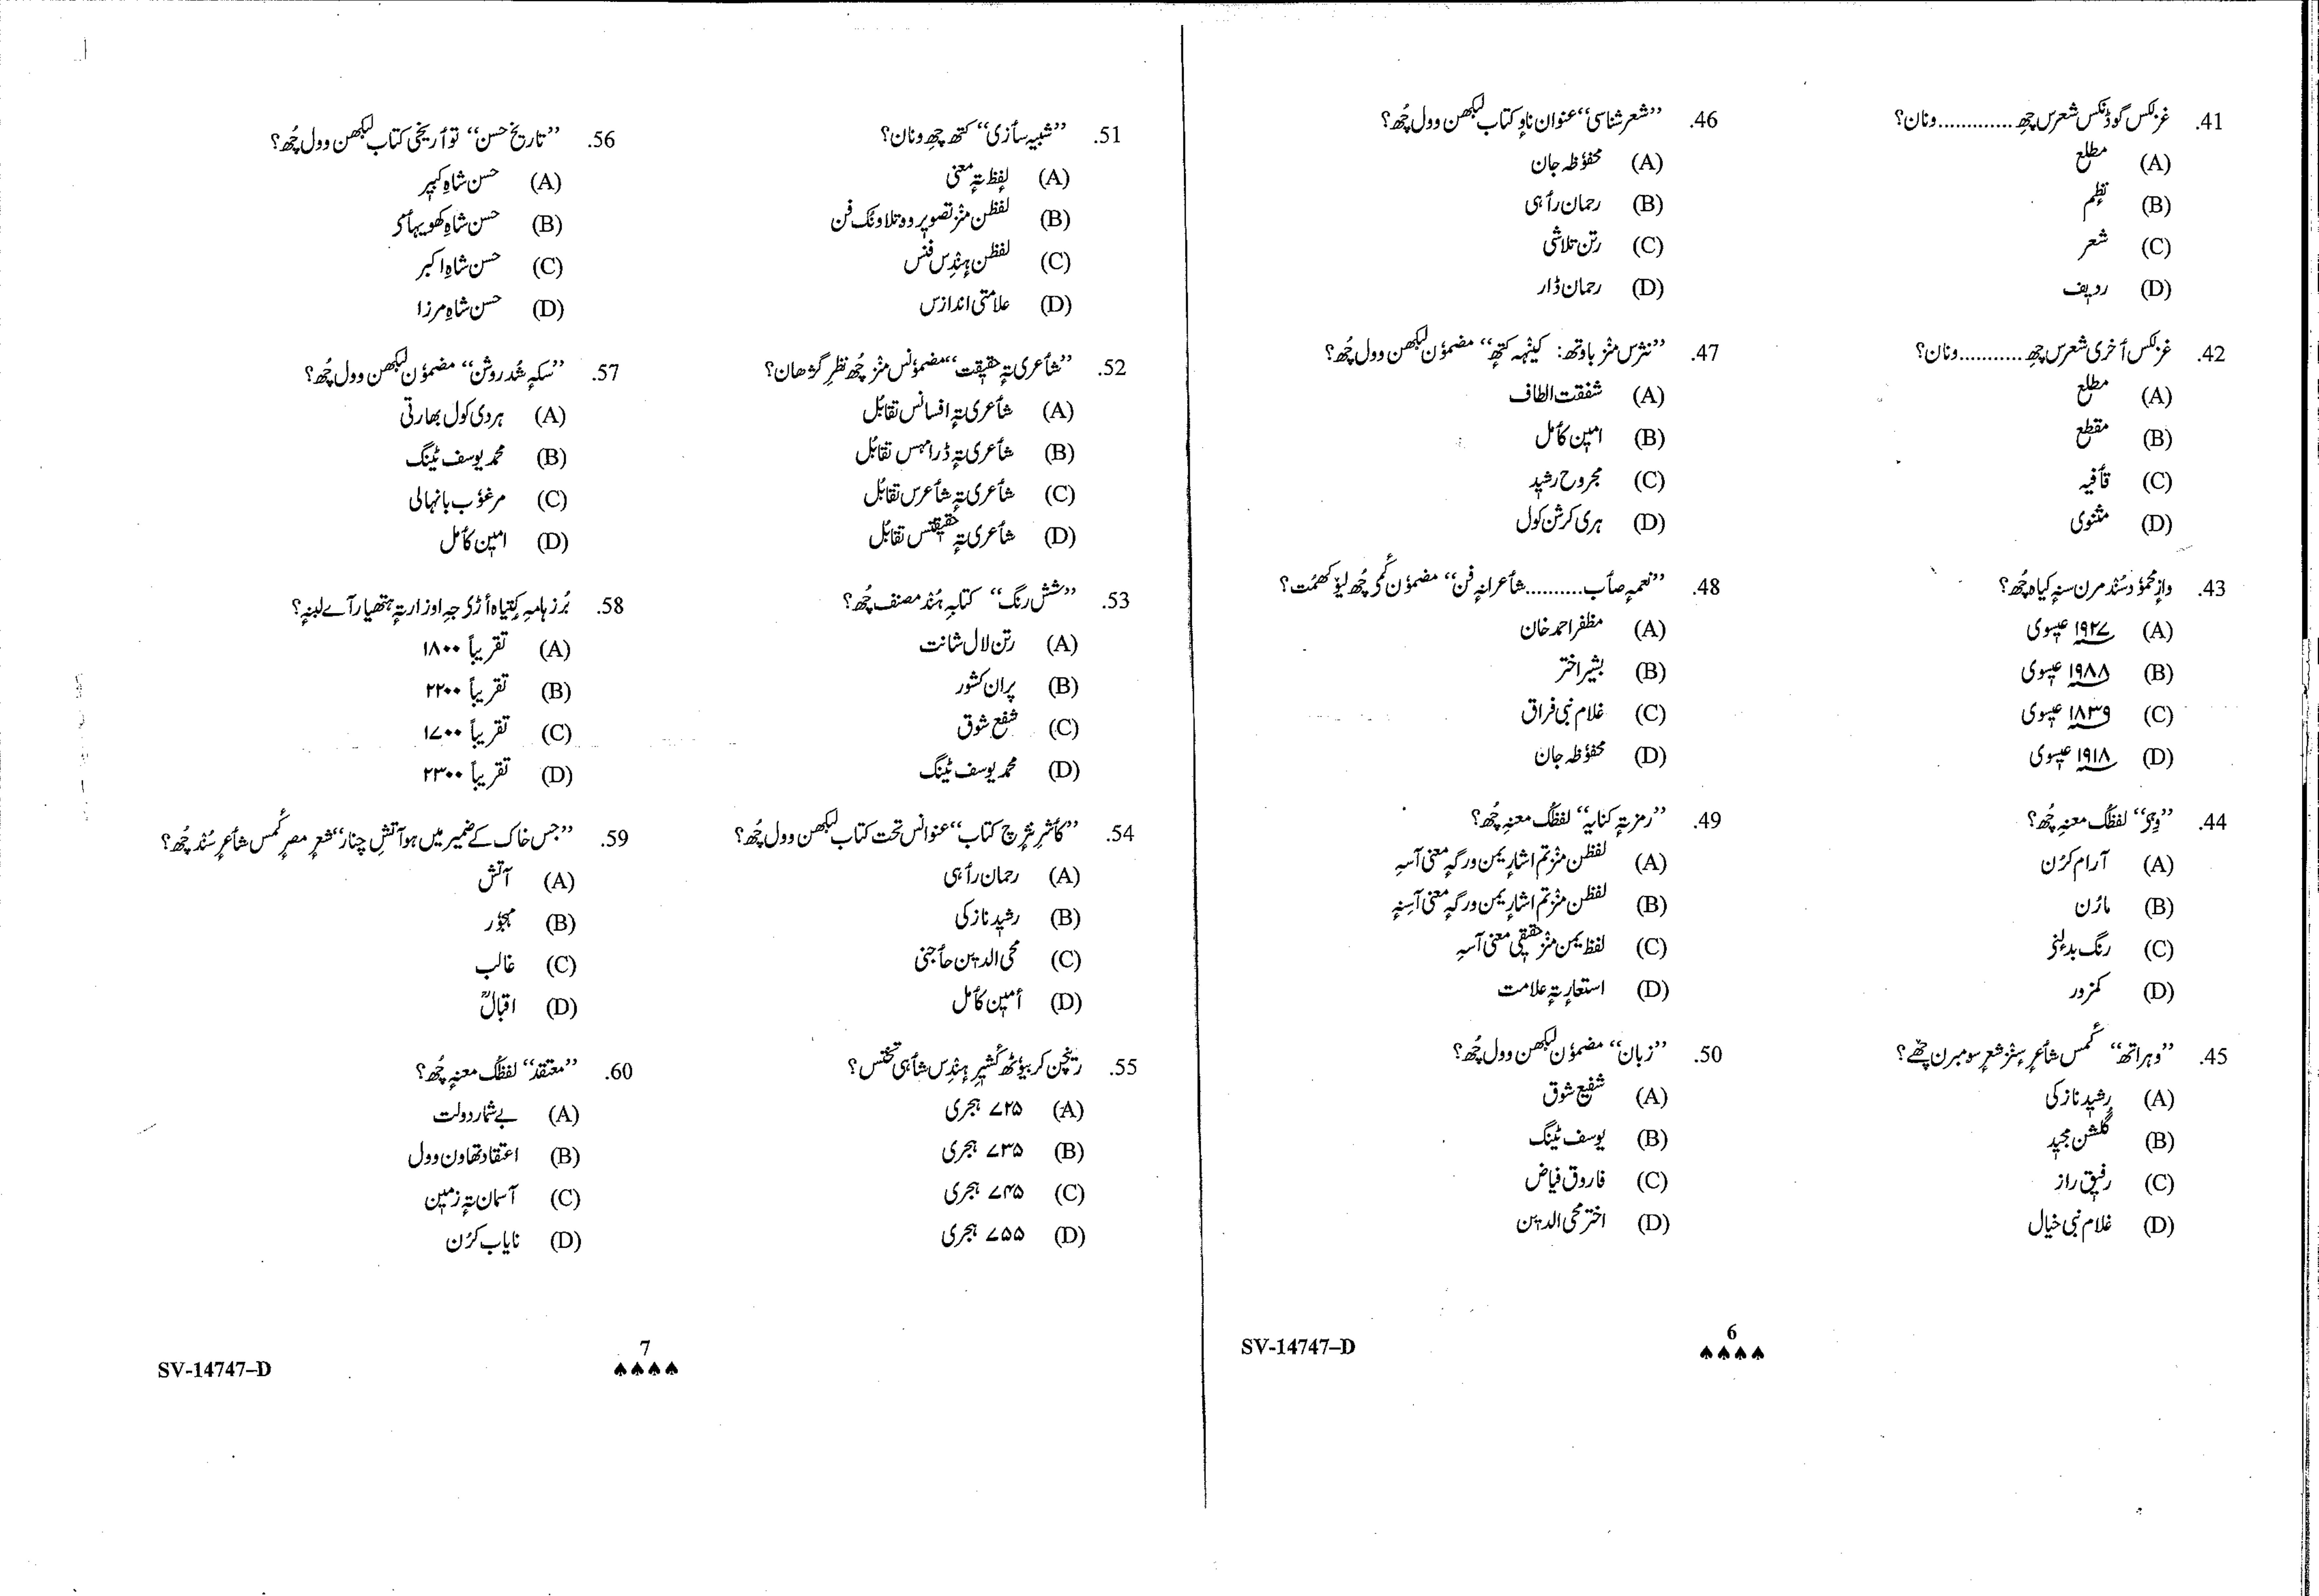 41. غزلکس گوڈنکس شعرس چھِ ............. ونان؟
(A) مطلع
(B) نظٕم
(C) شعر
(D) ردیٖف
42. غزلکس أخری شعرس چھِ ........... ونان؟
(A) مطلع
(B) مقطع
(C) قأفیہ
(D) مثنوی
43. وازٕ محموٗد سُنٛد مرن سنہٕ کیاہ چُھ؟
(A) ۱۹۲۷؁ عیٖسوی
(B) ۱۹۸۸؁ عیٖسوی
(C) ۱۸۳۹؁ عیٖسوی
(D) ۱۹۱۸؁ عیٖسوی
44. لفظُک معنہِ چُھ؟
(A) آرام کرُن
(B) مارُن
(C) رنگ بدلُنۍ
(D) کمزور
45. ”وہراتھ“ کٔمس شأعرٕ سٕنٛز شعرٕ سومبرن چھےٚ؟
(A) رشیٖد نازکی
(B) گلشن مجیٖد
(C) رفیٖق راز
(D) غلام نبی خیال
46. ”شعر شناسی“ عنوان ناوٕ کتاب لیٚکھن وول چُھ؟
(A) محفوٗظہ جان
(B) رحمان رأہی
(C) رتن تلاشی
(D) رحمان ڈار
47. ”نثرس منٛز باوتھ: کیٚنٛہہ کتھٕ“ مضموٗن لیٚکھن وول چُھ؟
(A) شفقت الطاف
(B) امیٖن کأمل
(C) مجروح رشیٖد
(D) ہری کرشن کول
48. ”نعمہٕ صأب .......... شأعرانہٕ فن“ مضموٗن کٔمۍ چُھ لیوٗکھمُت؟
(A) مظفر احمد خان
(B) بشیر اختر
(C) غلام نبی فراق
(D) محفوٗظہ جان
49. ”رمز تہٕ کنایہٕ“ لفظُک معنہِ چُھ؟
(A) لفظن منٛز تم اشارٕ یمن ورگہٕ معنی آسہِ
(B) لفظن منٛز تم اشارٕ یمن ورگہٕ معنی آسِنہٕ
(C) لفظ یمن منٛز حقیٖقی معنی آسہِ
(D) استعارٕ تہٕ علامت
50. ”زبان“ مضموٗن لیٚکھن وول چُھ؟
(A) شفیع شوق
(B) یوسف ٹینگ
(C) فاروق فیاض
(D) اختر محی الدیٖن
6
♠♠♠♠
SV-14747–D
51. ”شبیہہ سأزی“ کتھ چھِ ونان؟
(A) لفٕظ تہٕ معنی
(B) لفظن منٛز تصویٖر ووتلاونُک فن
(C) لفظن ہٕنٛدِس فنس
(D) علامتی اندازس
52. ”شأعری تہٕ حقیٖقت“ مضموٗنس منٛز چُھ نظرِ گژھان؟
(A) شأعری تہٕ افسانس تقابُل
(B) شأعری تہٕ ڈراماہس تقابُل
(C) شأعری تہٕ شأعرس تقابُل
(D) شأعری تہٕ حقیٖقتس تقابُل
53. ”شش رنگ“ کتابہِ ہُنٛد مصنف چُھ؟
(A) رتن لال شانت
(B) پران کشور
(C) شفیع شوق
(D) محمد یوسف ٹینگ
54. ”کأشرِ نثرٕچ کتاب“ عنوانس تحت کتاب لیٚکھن وول چُھ؟
(A) رحمان رأہی
(B) رشیٖد نازکی
(C) محی الدیٖن حأجنی
(D) أمیٖن کأمل
55. رینچن کر بیوٗٹھ کٔشیٖرِ ہٕنٛدِس شأہی تختس؟
(A) ۷۲۵ ہجری
(B) ۷۳۵ ہجری
(C) ۷۴۵ ہجری
(D) ۷۵۵ ہجری
56. ”تاریخ حسن“ توأریٖخی کتاب لیٚکھن وول چُھ؟
(A) حسن شاہِ کبیٖر
(B) حسن شاہِ کھویہامۍ
(C) حسن شاہِ اکبر
(D) حسن شاہِ مرزا
57. ”سکہٕ شُد روش“ مضموٗن لیٚکھن وول چُھ؟
(A) ہردی کول بھارتی
(B) محمد یوسف ٹینگ
(C) مرغوٗب بانہالی
(D) امیٖن کأمل
58. بُرزہامہٕ کٕتیاہ أڈۍ جہِ اوزار تہٕ ہتھیار آے لبنہٕ؟
(A) تقریباً ۱۸۰۰
(B) تقریباً ۲۲۰۰
(C) تقریباً ۱۷۰۰
(D) تقریباً ۲۳۰۰
59. ”جس خاک کے ضمیر میں ہو آتشِ چنار“ شعرٕ مصرٕ کٔمس شأعرٕ سُنٛد چُھ؟
(A) آتش
(B) مہجوٗر
(C) غالب
(D) اقبالؒ
60. ”معتقد“ لفظُک معنہِ چُھ؟
(A) بے شمار دولت
(B) اعتقاد تھاون وول
(C) آسمان تہٕ زمیٖن
(D) نایاب کرُن
7
♠♠♠♠
SV-14747–D